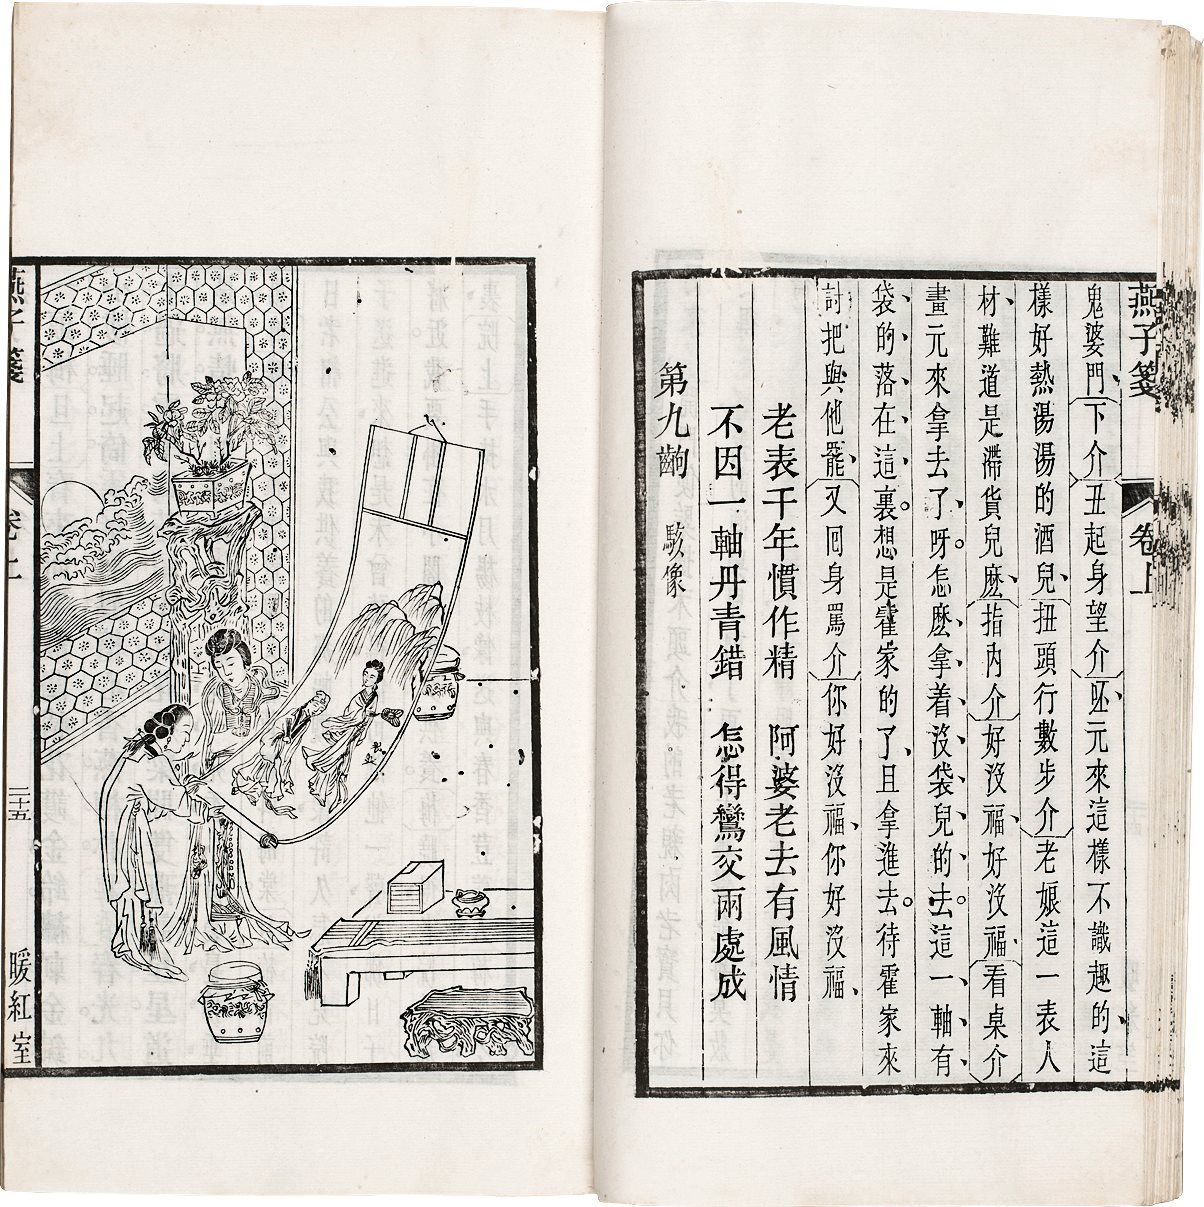 燕子箋
卷上
鬼婆門下介丑起身望介呸元來這樣不識趣的這
樣好熱湯湯的酒兒扭頭行數步介老娘這一表人
材難道是滯貨兒麽指內介好沒福好沒福看桌介
畫元來拿去了呀怎麽拿着沒袋兒的去這一軸有
袋的落在這裏想是霍家的了且拿進去待霍家來
討把與他罷又回身罵介你好沒福你好沒福
老表千年慣作精 阿婆老去有風情
不因一軸丹青錯 怎得鸞交兩處成
第九齣 駭像
燕子箋
卷上
二十五
暖紅室